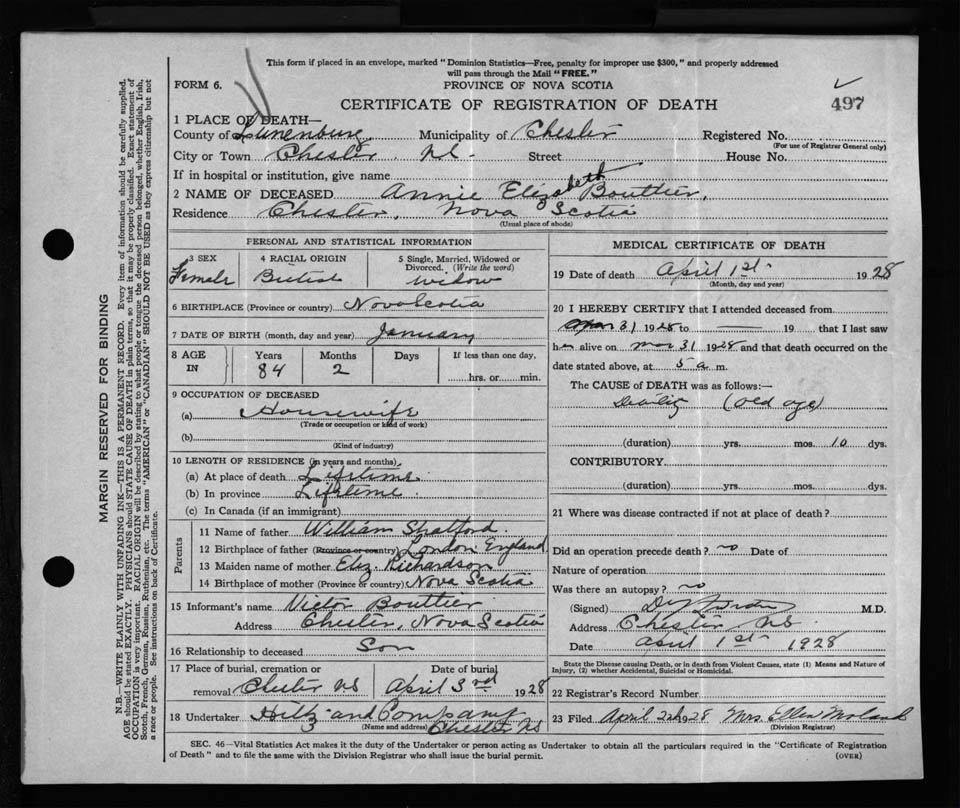 This form if placed in an envelope, marked "Dominion Statistics—Free, penalty for improper use $300," and properly addressed
will pass through the Mail "FREE."
FORM 6.
PROVINCE OF NOVA SCOTIA
CERTIFICATE OF REGISTRATION OF DEATH
497
1 PLACE OF DEATH—
County of Lunenburg Municipality of Chester Registered No.
(For use of Registrar General only)
City or Town Chester NS. Street House No.
If in hospital or institution, give name
2 NAME OF DECEASED Annie Elizabeth Bouttier.
Residence Chester, Nova Scotia
(Usual place of abode)
PERSONAL AND STATISTICAL INFORMATION
3 SEX Female
4 RACIAL ORIGIN British
5 Single, Married, Widowed or Divorced. (Write the word) Widow
6 BIRTHPLACE (Province or country) Nova Scotia
7 DATE OF BIRTH (month, day and year) January
8 AGE IN Years 84 Months 2 Days If less than one day, hrs. or min.
9 OCCUPATION OF DECEASED
(a) Housewife
(Trade or occupation or kind of work)
(b)
(Kind of industry)
10 LENGTH OF RESIDENCE (in years and months)
(a) At place of death Lifetime
(b) In province Lifetime.
(c) In Canada (if an immigrant)
Parents
11 Name of father William Shatford.
12 Birthplace of father (Province or country) London England
13 Maiden name of mother Eliz. Richardson
14 Birthplace of mother (Province or country) Nova Scotia
15 Informant's name Victor Bouttier
Address Chester, Nova Scotia
16 Relationship to deceased Son
17 Place of burial, cremation or removal Chester NS
Date of burial April 3rd 1928
18 Undertaker Hiltz and Company
(Name and address) Chester NS
MEDICAL CERTIFICATE OF DEATH
19 Date of death April 1st 1928
(Month, day and year)
20 I HEREBY CERTIFY that I attended deceased from
31 1928 to — 19 that I last saw
her alive on Mar 31 1928 and that death occurred on the
date stated above, at 5 a m.
The CAUSE of DEATH was as follows:—
(old age)
(duration) yrs. mos. 10 dys.
CONTRIBUTORY
(duration) yrs. mos. dys.
21 Where was disease contracted if not at place of death?
Did an operation precede death? no Date of
Nature of operation
Was there an autopsy? no
(Signed) M.D.
Address Chester NS.
Date April 1st 1928
State the Disease causing Death, or in death from Violent Causes, state (1) Means and Nature of
Injury, (2) whether Accidental, Suicidal or Homicidal.
22 Registrar's Record Number
23 Filed April 1928 Mrs.
(Division Registrar)
SEC. 46—Vital Statistics Act makes it the duty of the Undertaker or person acting as Undertaker to obtain all the particulars required in the "Certificate of Registration
of Death" and to file the same with the Division Registrar who shall issue the burial permit.
(OVER)
MARGIN RESERVED FOR BINDING
N.B.—WRITE PLAINLY WITH UNFADING INK—THIS IS A PERMANENT RECORD. Every item of information should be carefully supplied.
AGE should be stated EXACTLY. PHYSICIANS should STATE CAUSE OF DEATH in plain terms, so that it may be properly classified. Exact statement of
OCCUPATION is very important. RACIAL ORIGIN will be described by stating to what people or tongue the deceased person belonged, whether English, Irish,
Scotch, French, German, Russian, Ruthenian, etc. The terms "AMERICAN" or "CANADIAN" SHOULD NOT BE USED as they express citizenship but not
a race or people. See instructions on back of Certificate.